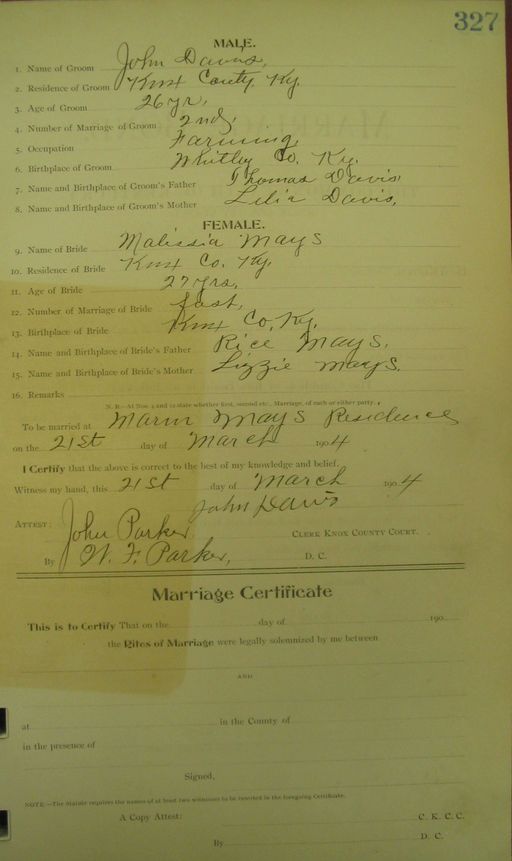 327
MALE.
1. Name of Groom John Davis,
2. Residence of Groom Knox County Ky.
3. Age of Groom 26 yr,
4. Number of Marriage of Groom 2nd,
5. Occupation Farming,
6. Birthplace of Groom Whitley Co. Ky.
7. Name and Birthplace of Groom's Father Thomas Davis
8. Name and Birthplace of Groom's Mother Lelia Davis,
FEMALE.
9. Name of Bride Malissia Mays
10. Residence of Bride Knox Co. Ky,
11. Age of Bride 27 yrs,
12. Number of Marriage of Bride
13. Birthplace of Bride Knox Co, Ky.
14. Name and Birthplace of Bride's Father Rice Mays,
15. Name and Birthplace of Bride's Mother Lizzie Mays.
16. Remarks
N. B.—At Nos. 4 and 12 state whether first, second etc., Marriage, of each or either party.
To be married at Mays Residence
on the 21st day of March 1904
I Certify that the above is correct to the best of my knowledge and belief.
Witness my hand, this 21st day of March 1904
John Davis
ATTEST: John Parker, CLERK KNOX COUNTY COURT.
By W. F. Parker, D. C.
Marriage Certificate
This is to Certify That on the day of 190
the Rites of Marriage were legally solemnized by me between
AND
at in the County of
in the presence of
Signed,
NOTE.—The Statute requires the names of at least two witnesses to be inserted in the foregoing Certificate.
A Copy Attest: C. K. C. C.
By D. C.